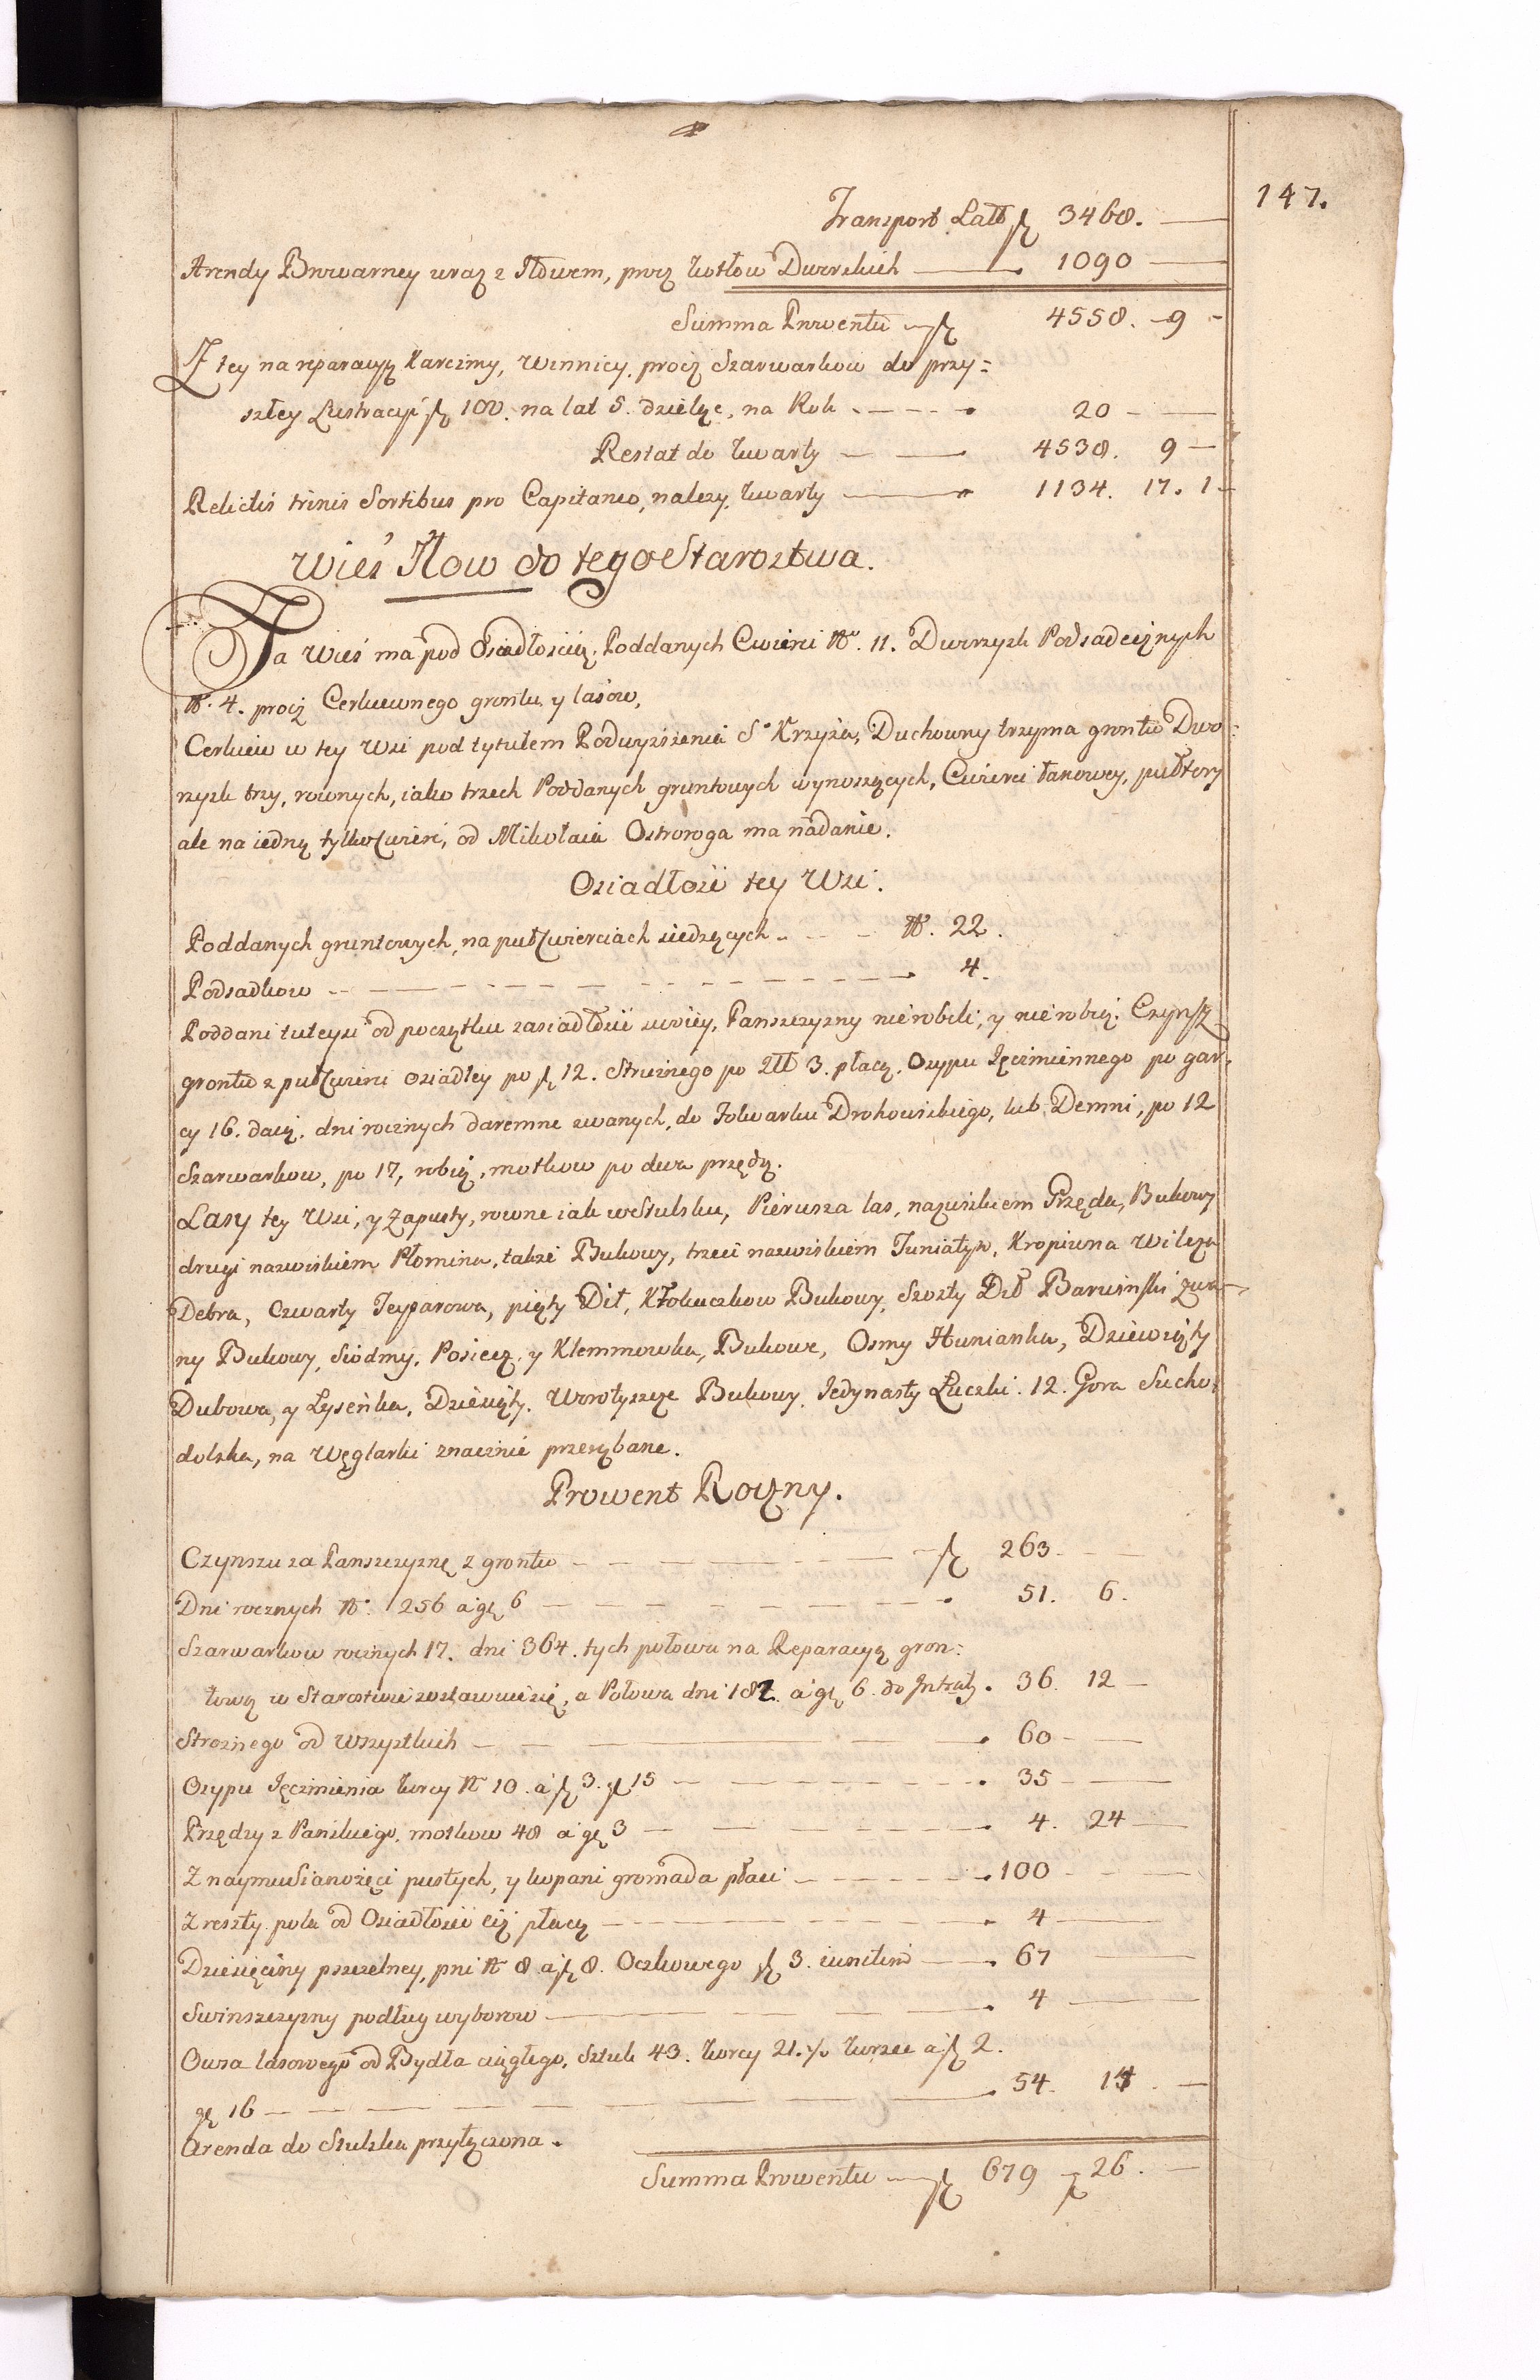 147.
Transport Latt fl 3468. —
Arendy Browarney wraz z Iłowem, procz kotłow Dworskich — 1090 —
Summa Prowentu — fl 4558. — 9 -
Z tey na reparacyą Karczmy, Winnicy, procz Szarwarkow do przy=
szłey Lustracyi fl 100. na lat 5. dzieląc, na Rok - — - - 20 - —
Restat do kwarty — — 4538. 9 —
Relictis trinis Sortibus pro Capitaneo, należy kwarty — 1134. 17. 1 -
Wieś Iłow do tego Starostwa.
Ta Wieś ma pod Osiadłością Poddanych Cwierci N° 11. Dworzysk Podsadczyznych
N° 4. procz Cerkiewnego grontu y lasow,
Cerkiew w tey Wsi pod tytułem Podwyższenia S° Krzyża, Duchowny trzyma grontu Dwo=
rzysk trzy, rownych, iako trzech Poddanych gruntowych wynoszących, Cwierci łanowey, pułtory
ale na iedną tylko Cwierć, od Mikołaia Ostroroga ma nadanie.
Osiadłość tey Wsi.
Poddanych gruntowych, na puł Cwierciach siedzących - - - N° 22.
Podsadkow - — - - - — - - - 4.
Poddani tuteysi od początku zasiadłości swoiey, Panszczyzny nie robili, y nie robią. Czynsz
grontu z puł Cwierci osiadłey po fl 12. Strożnego po Zlt 3. płacą. Osypu Jęczmiennego po gar-
cy 16. daią. dni rocznych daremne zwanych, do Folwarku Drohowskiego, lub Demni, po 12
Szarwarkow, po 17, robią, motkow po dwa przędą.
Lasy tey Wsi, y Zapusty, rowne iak w Stulsku, Pierwsza las, nazwiskiem Przęda, Bukowy
drugi nazwiskiem Płomina, także Bukowy, trzeci nazwiskiem Juniatyn, Kropiwna Wilcza
Debra, Czwarty Jeyparowa, piąty Dił, Kłobuczkow Bukowy, Szosty Dił Barwinski zwa-
ny Bukowy, Siodmy, Posiecz y Klemmowka, Bukowe, Osmy Hunianka, Dziewiąty
Dubowa, y Łyseńka, Dziesiąty. Worotyszcze Bukowy, Jedynasty Łuczki. 12. Gora Sucho:
dolska, na Węglarki znacznie przerąbane.
Prowent Roczny.
Czynszu za Panszczyznę z grontu — — — fl 263 - —
Dni rocznych N° 256 a gr 6 — — — 51. 6.
Szarwarkow rocznych 17. dni 364. tych połowa na Reparacyą gron=
tową w Starostwie zostawuie się, a Połowa dni 182. a gr 6. do Intraty. 36. 12 —
Strożnego od wszystkich — — — 60 - —
Osypu Jęczmienia korcy N° 10. a fl 3. gr 15 — — — 35 - —
Przędzy z Pańskiego, motkow 48 a gr 3 — — — 4. 24 —
Z naymu Sianożęci pustych, y kopani gromada płaci — — — 100 - —
Z reszty pola od Osiadłości ciż płacą — — — 4 —
Dziesięciny pszczelney, pni N° 8 a fl 8. Oczkowego fl 3. iunctim — 67 —
Swinszczyzny podług wyborow — — — 4 —
Owsa lasowego od Bydła ciągłego, Sztuk 43. korcy 21. ½ korzec a fl 2.
gr 16 — — — 54. 14. —
Arenda do Stulska przyłączona.
Summa Prowentu — fl 679 gr 26. —